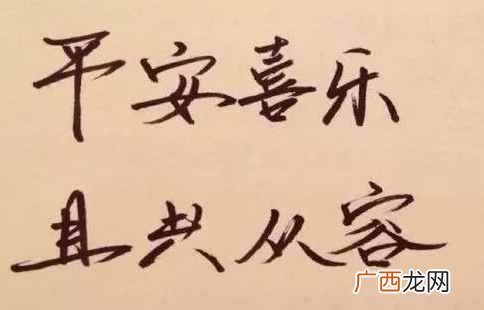 平安喜乐
且共从容
广西龙网